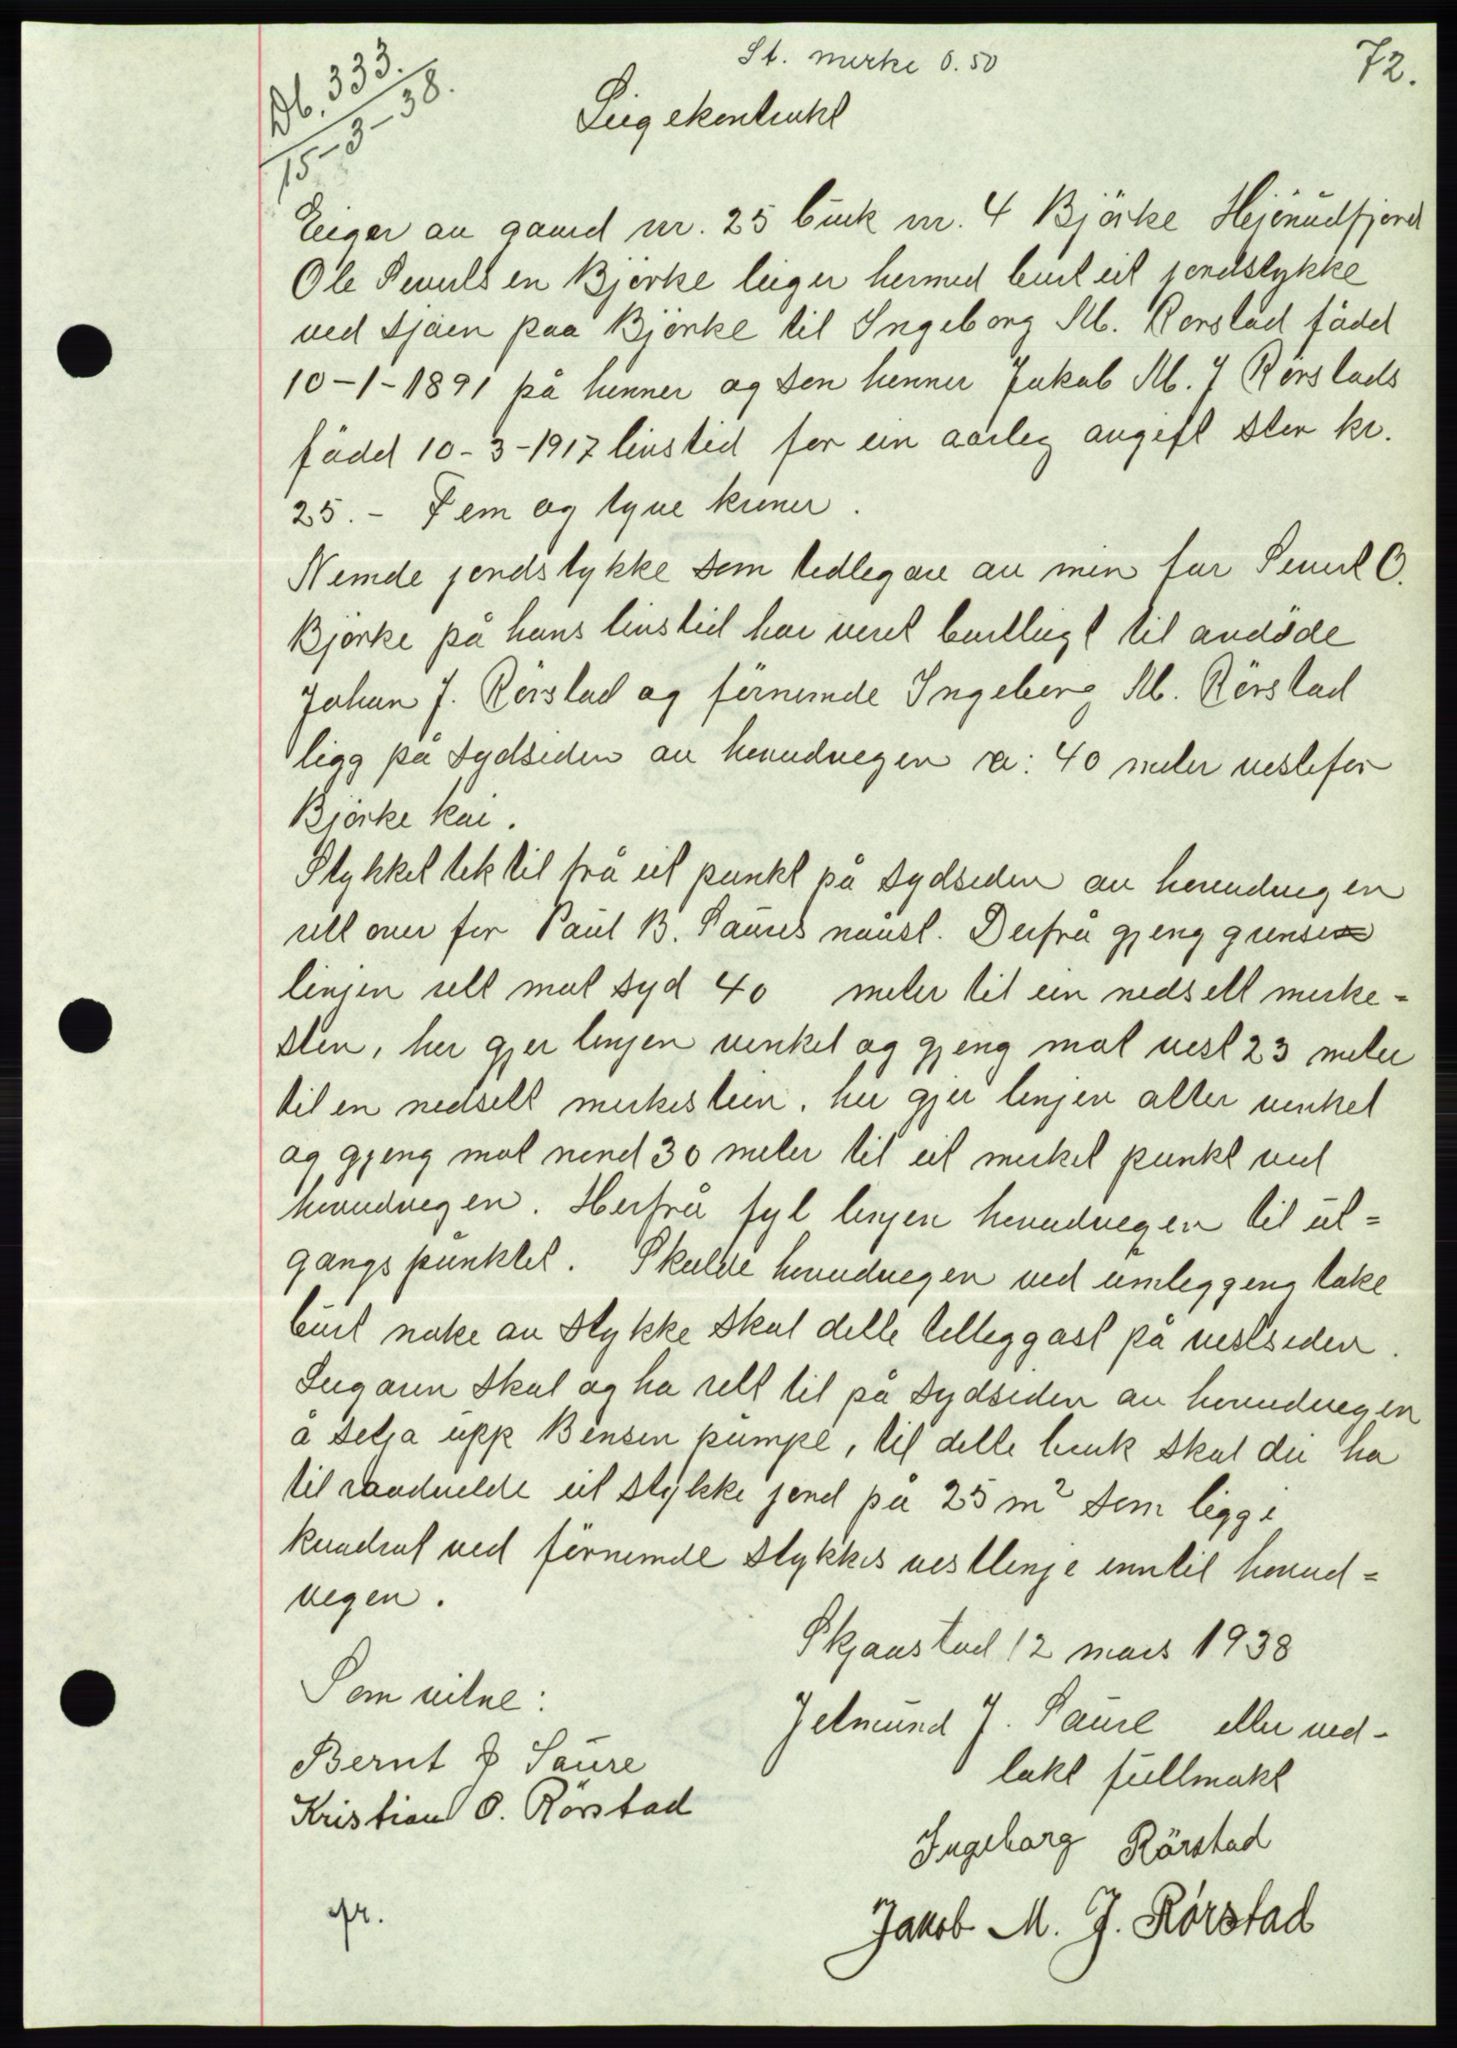 St. merke 0.50
72.
Db. 333.
15-3-38.
Leigekontrakt
Eigar av gaard nr. 25 bruk nr. 4 Björke Hjörundfjord
Ole Severtsen Björke leiger hermed burt eit jordstykke
ved sjøen paa Björke til Ingeborg M. Rørstad fådd
10-1-1891 på henner og son henner Jakob M. J Rörstads
fådd 10-3-1917 livstid for ein aarleg avgift stor kr.
25.- Fem og tyve kroner.
Nemde jordstykke som tidlegare av min far Severt O.
Björke på hans livstid har veret burtleigt til avdöde
Johan J. Rörstad og förnemde Ingeborg M. Rörstad
ligg på sydsiden av hovudvegen ca: 40 meter vestefor
Björke kai.
Stykket tek til frå eit punkt på sydsiden av hovudvegen
rett over for Paul B. Saures naust. Derfrå gjeng grense
linjen rett mot syd 40 meter til ein nedsett merke=
sten, her gjer linjen vinkel og gjeng mot vest 23 meter
til en nedsett merkestein, her gjer linjen atter vinkel
og gjeng mot nord 30 meter til eit merket punkt ved
hovudvegen. Herfrå fyl linjen hovudvegen til ut=
gangspunktet. Skulde hovudvegen ved umleggeng take
burt noke av stykke skal dette tilleggast på vestsiden.
Leigaren skal og ha rett til på sydsiden av hovudvegen
å setja upp Bensin pumpe, til dette bruk skal dei ha
til raadvelde eit stykke jord på 25 m² som ligg i
kvadrat ved förnemde stykkes vestlinje inntil hovud=
vegen.
Skjaastad 12 mars 1938
Som vitne:
Jetmund J. Saure etter ved-
lakt fullmakt
Bernt J Saure
Kristian O. Rörstad
Ingeborg Rörstad
Jakob M. J. Rörstad